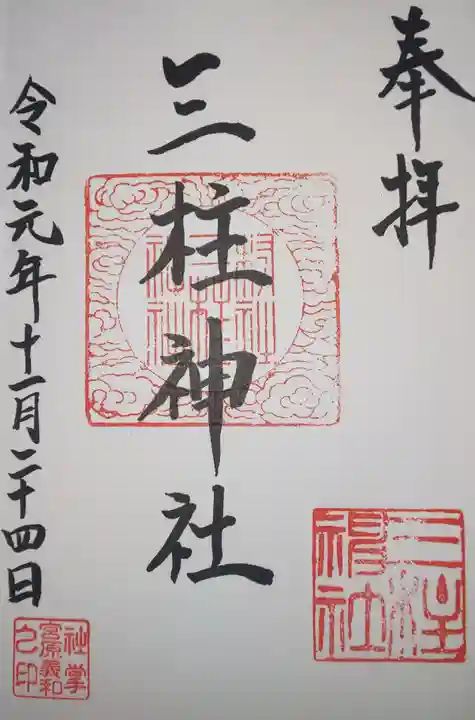 奉拝
三柱神社
三柱
神社
令和元年十一月二十四日
社掌
宮原義和
之印